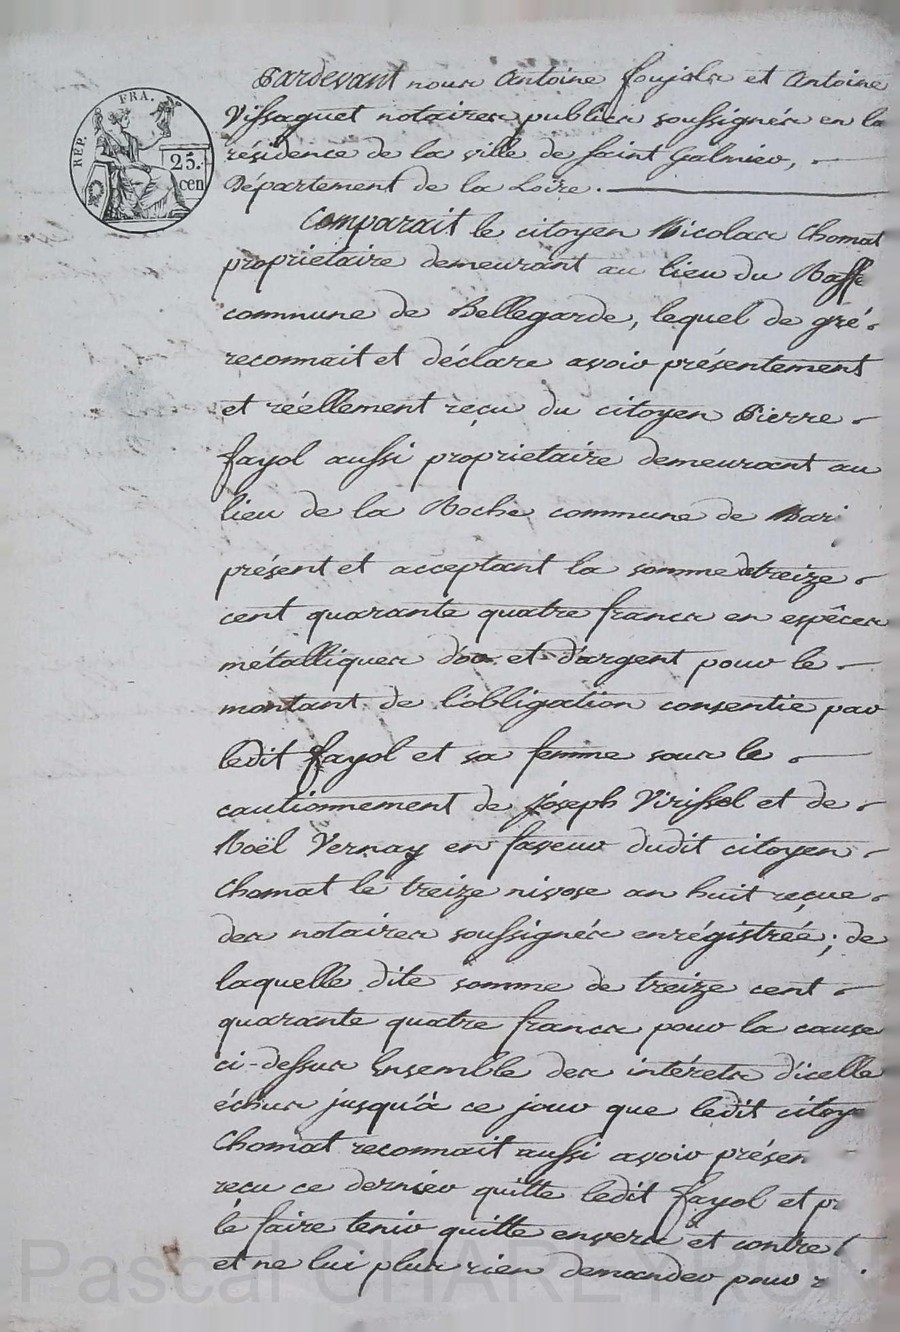 REP. FRA.
25. cen
Pardevant nous Antoine foujols et Antoine
Vissaguet notaires publics soussignés en la
résidence de la ville de Saint Galmier,
Département de la Loire.
Comparait le citoyen Nicolas Chomat
proprietaire demeurant au lieu du
commune de Bellegarde, lequel de gré
reconnait et déclare avoir présentement
et réellement reçu du citoyen Pierre
fayol aussi proprietaire demeurant au
lieu de la Roche commune de
présent et acceptant la somme de treize
cent quarante quatre francs en espêces
métalliques d'or et d'argent pour le
montant de l'obligation consentie par
ledit fayol et sa femme sous le
cautionnement de Joseph Virissel et de
Noël Vernay en faveur dudit citoyen
Chomat le treize nivose an huit reçue
des notaires soussignés enrégistrée; de
laquelle dite somme de treize cent
quarante quatre francs pour la cause
ci-dessus Ensemble des intérets d'icelle
échus jusqu'à ce jour que ledit citoye
Chomat reconnait aussi avoir présen
recu ce dernier quitte ledit fayol et pr
le faire tenir quitte envers et contre t
et ne lui plus rien demander pour r
Pascal CHAREYRON